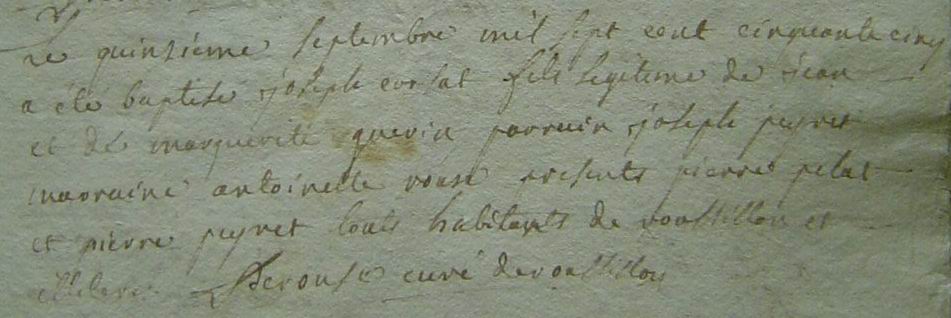 Le quinzième septembre mil sept cent cinquante cinq
a été baptisé joseph corsat fils legitime de jean
et de marguerite guerin parrain joseph peyret
marraine antoinette rouse presents pierre pelat
et pierre peyret touts habitants de roussillon et
illeteres Derouse curé de roussillon